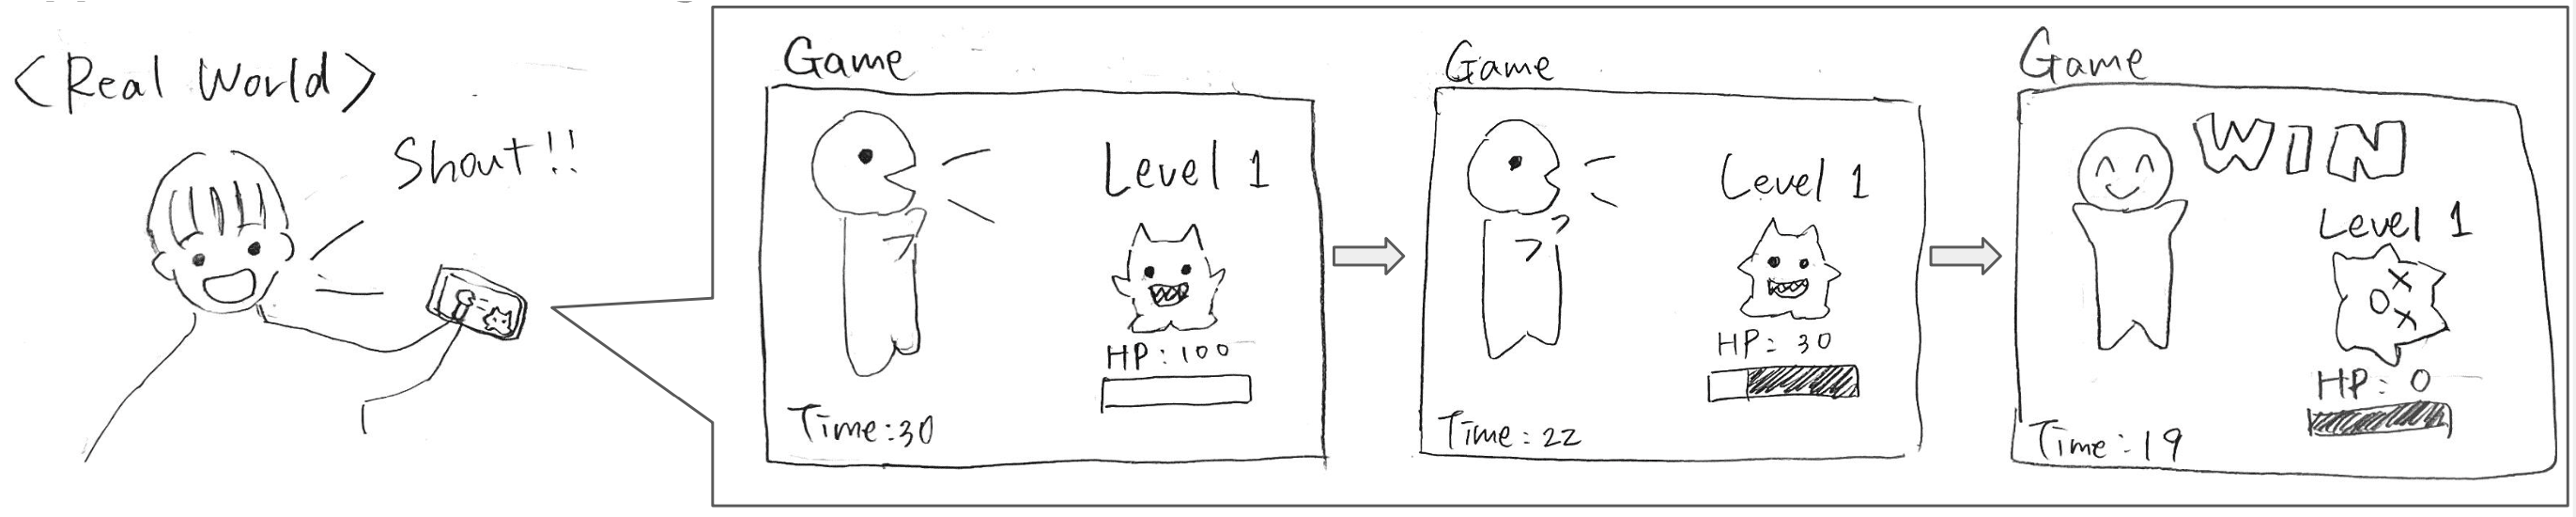 <Real World>
Shout!!
Game
Level 1
HP: 100
Time: 30
Game
Level 1
HP: 30
Time: 22
Game
WIN
Level 1
HP: 0
Time: 19